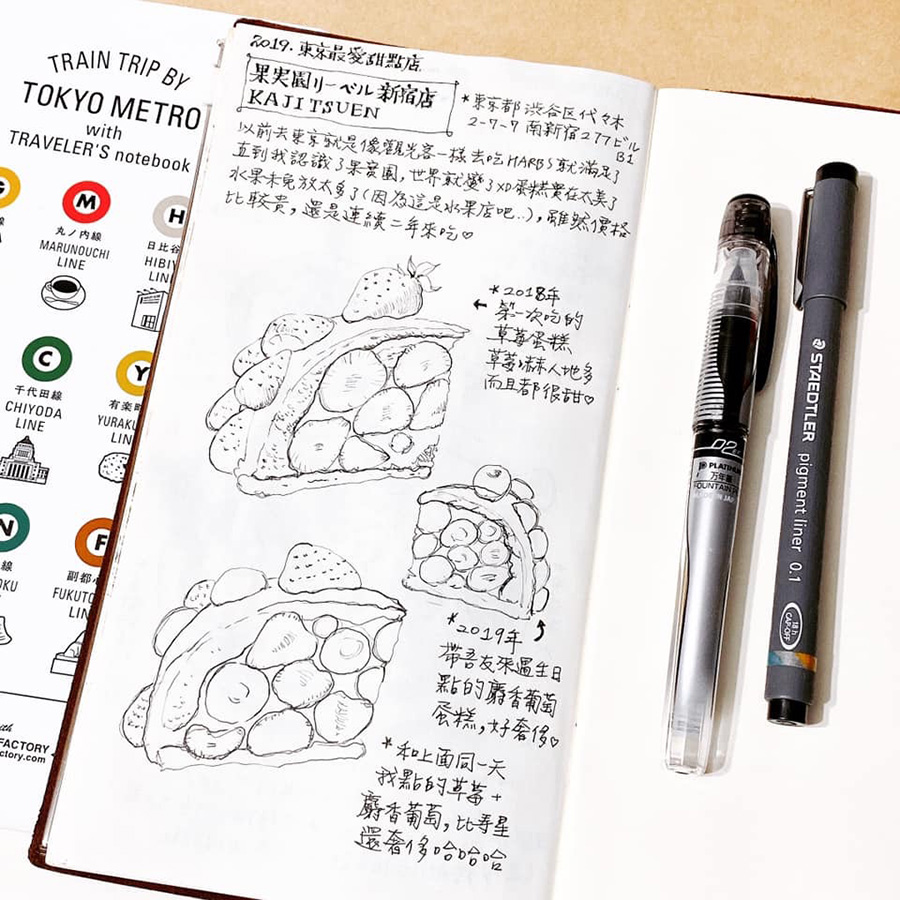 TRAIN TRIP BY
TOKYO METRO
with
TRAVELER'S notebook
G
M
H
線
丸ノ内線
MARUNOUCHI
LINE
日比谷
HIBIY
LIN
C
Y
千代田線
CHIYODA
LINE
有楽町
YURAKU
LIN
N
F
線
OKU
副都心
FUKUTO
LIN
with
FACTORY
factory.com
2019. 東京最愛甜點店
果実園リーベル 新宿店
KAJITSUEN
*東京都 渋谷区代々木
2-7-7 南新宿277ビル
B1
以前去東京就是像觀光客一樣去吃HARBS就滿足了
直到我認識了果實園,世界就變了XD蛋糕實在太美了
水果未免放太多了(因為這是水果店吧..),雖然價格
比較貴,還是連續二年來吃♡
*2018年
第一次吃的
草莓蛋糕
草莓嚇人地多
而且都很甜♡
*2019年
帶吾友來過生日
點的麝香葡萄
蛋糕,好奢侈♡
*和上面同一天
我點的草莓+
麝香葡萄,比壽星
還奢侈哈哈哈
02
PLATINUM
万年筆
FOUNTAIN
STAEDTLER
pigment liner 0.1
18 h
CAP-OFF